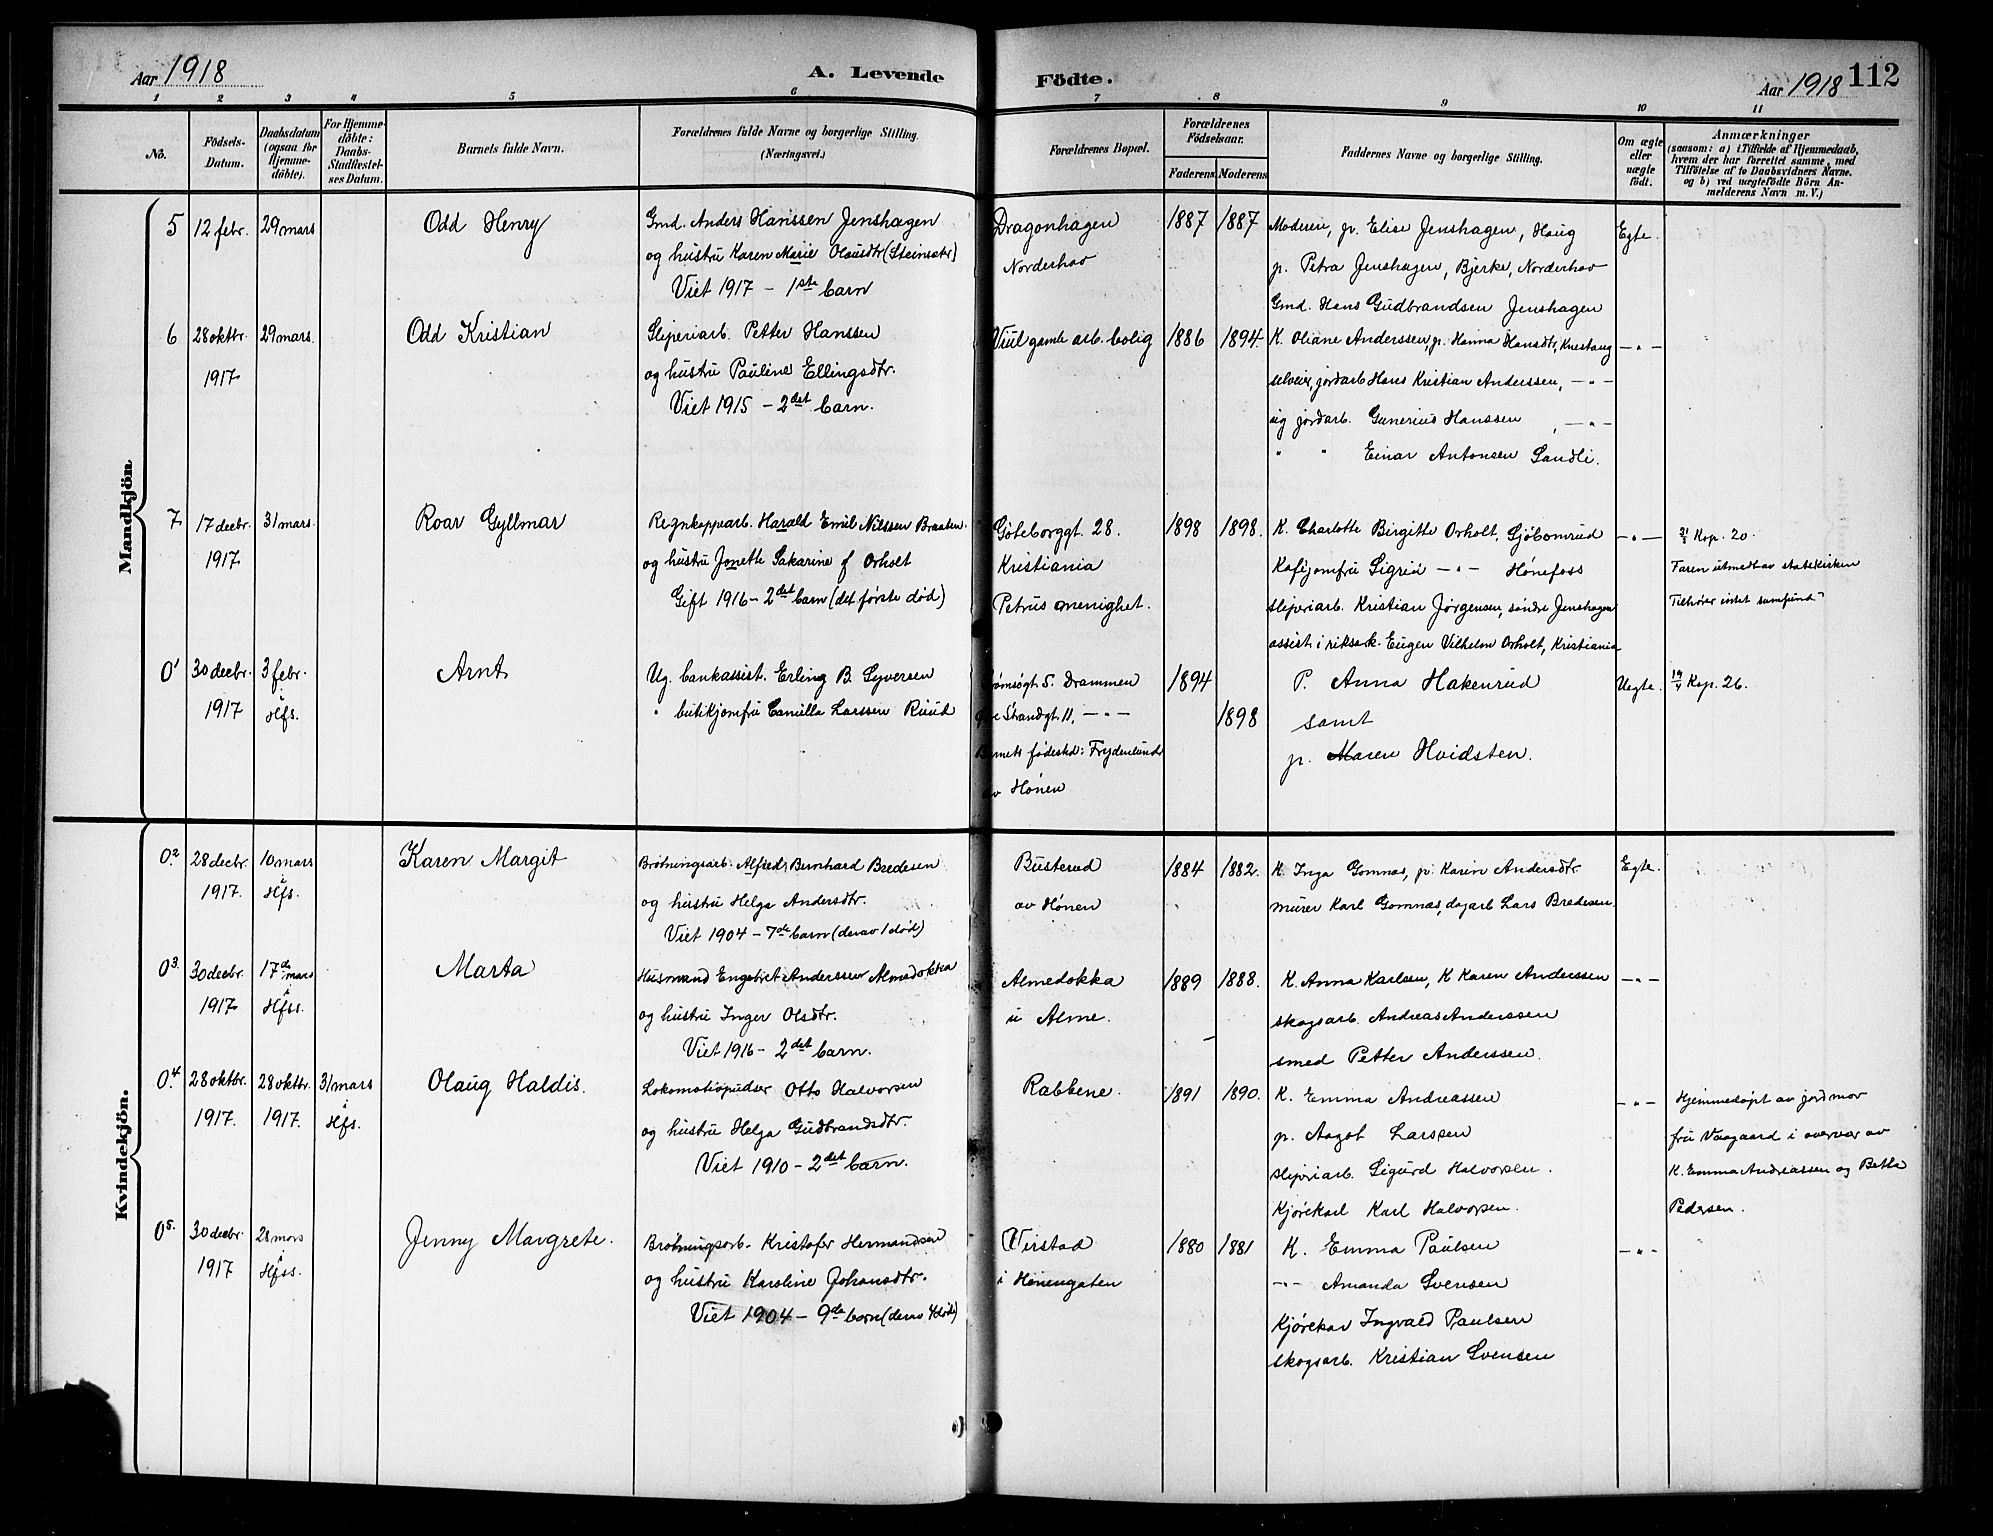 Aar 1918
A. Levende
Födte.
Aar 1918
112
1 2 3 4 5 6 7 8 9 10 11
No.
Födsels-
Datum.
Daabsdatum
(ogsaa for
Hjemme-
döbte).
For Hjemme-
döbte:
Daabs-
Stadfæstel-
ses Datum.
Barnets fulde Navn.
Forældrenes fulde Navne og borgerlige Stilling.
(Næringsvei.)
Forældrenes Bopæl.
Forældrenes
Födselsaar.
Faderens
Moderens
Faddernes Navne og borgerlige Stilling.
Om ægte
eller
uægte
födt.
Anmærkninger
(saasom: a) i Tilfælde af Hjemmedaab,
hvem der har forrettet samme, med
Tilföielse af to Daabsvidners Navne.
og b) ved uægtefödte Börn An-
melderens Navn m. V.)
Mandkjön.
5
12 febr.
29 mars
Odd Henry
Gmd. Anders Hanssen Jenshagen
og hustru Karen Marie Olausdtr (Steinsætr)
Viet 1917 – 1ste barn
Dragonhagen
Norderhov
1887
1887
Moderen, p. Elise Jenshagen, Haug
p. Petra Jenshagen, Bjerke, Norderhov
Gmd. Hans Gudbrandsen Jenshagen
Egte.
6
28 oktbr.
1917
29 mars.
Odd Kristian
Sliperiarb. Petter Hanssen
og hustru Pauline Ellingsdtr.
Viet 1915 – 2det barn.
Viul gamle arb. bolig
1886
1894.
K. Oliane Anderssen, p. Hanna Hansdtr, Knestang
selveier, jordarb Hans Kristian Anderssen, – " –
ug jordarb. Gunerius Hanssen , – " –
" " Einar Antonsen Sandli.
– " –
7
17 decbr.
1917
31 mars.
Roar Gyllmar
Regnkappearb. Harald Emil Nilssen Braaten.
og hustru Jonette Sakarine f Orholt
Gift 1916 – 2det barn (det første død)
Göteborggt. 28.
Kristiania
Petrus menighet.
1898
1898.
K. Charlotte Birgitte Orholt, Gjøbomrud
Kafijomfru Sigrid – " – Hønefoss
sliperiarb. Kristian Jørgensen, søndre Jenshagen
assist i riksark. Eugen Vilhelm Orholt, Kristiania
– " –
Kop. 20.
Faren utmeldt av statskirken
Tilhører intet samfund
01
30 decbr.
1917
3 febr.
i
Hfs.
Arnt
Ug. bankassist. Erling B. Syversen
" butikjomfru Camilla Larssen Ruud
Tømsøgt 5. Drammen
Strandgt. 11, – " –
Barnets fødested: Frydenlund
av Hønen
1894
1898
P. Anna Hakenrud
samt
p. Maren Hvidsten.
Uegte.
19/4 Kop. 26.
Kvindekjön.
0.2
28 decbr.
1917.
10 mars
i
Hfs.
Karen Margit
Brøtningsarb. Alfred Bernhard Bredesen
og hustru Helga Andersdtr.
Viet 1904 – 7de barn (derav 1 død)
Busterud
av Hønen
1884
1882.
K. Inga Gomnæs, p. Karen Andersdtr.
murer Karl Gomnæs, dagarb Lars Bredesen.
Egte.
03.
30 decbr.
1917
17de mars
i
Hfss.
Marta
Husmand Engebret Anderssen Almedokka
og hustru Inger Olsdtr.
Viet 1916 – 2det barn.
Almedokka
u Alme.
1889
1888.
K. Anna Karlsen, K Karen Anderssen
skogsarb. Andreas Anderssen
smed Petter Anderssen.
– " –
0.4
28 oktbr.
1917.
28 oktbr.
1917.
31 mars
i
Hfs.
Olaug Haldis.
Lokomotivpudser Otto Halvorsen
og hustru Helga Gudbrandsdtr.
Viet 1910 – 2det barn.
Rabbene.
1891
1890.
K. Emma Andreassen
p. Aagot Larssen
sliperiarb. Sigurd Halvorsen.
Kjørekarl Karl Halvorsen.
– " –
Hjemmedøpt av jordmor
fru Vaagaard i overvær av
K. Emma Andreassen og Betle
Pedersen.
05.
30 decbr.
1917
28 mars
i
Hfss.
Jenny Margrete.
Brøtningsarb. Kristofer Hermandsen
og hustru Karoline Johansdtr.
Viet 1904 – 9de barn (derav 4 døde)
Virstad
i Hønengaten
1880
1881
K. Emma Paulsen
– " – Amanda Svensen
Kjørekar Ingvald Paulsen
skogsarb. Kristian Svensen
– " –